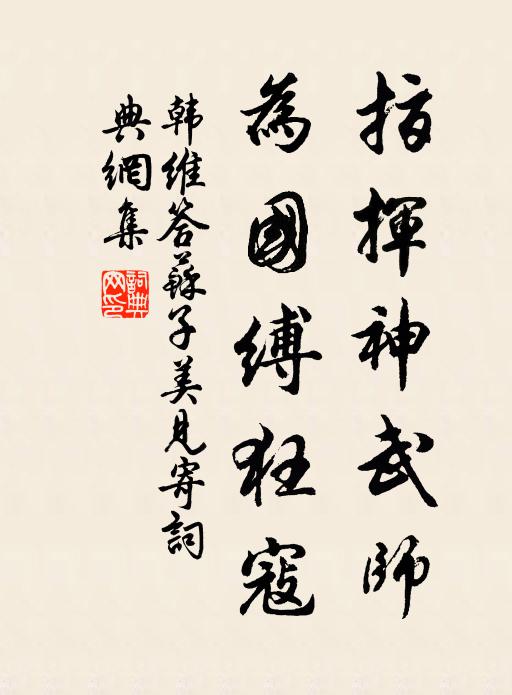 指揮神武師
為國縛狂寇
韩維答蘇子美見寄詞
典網集
詞典網印